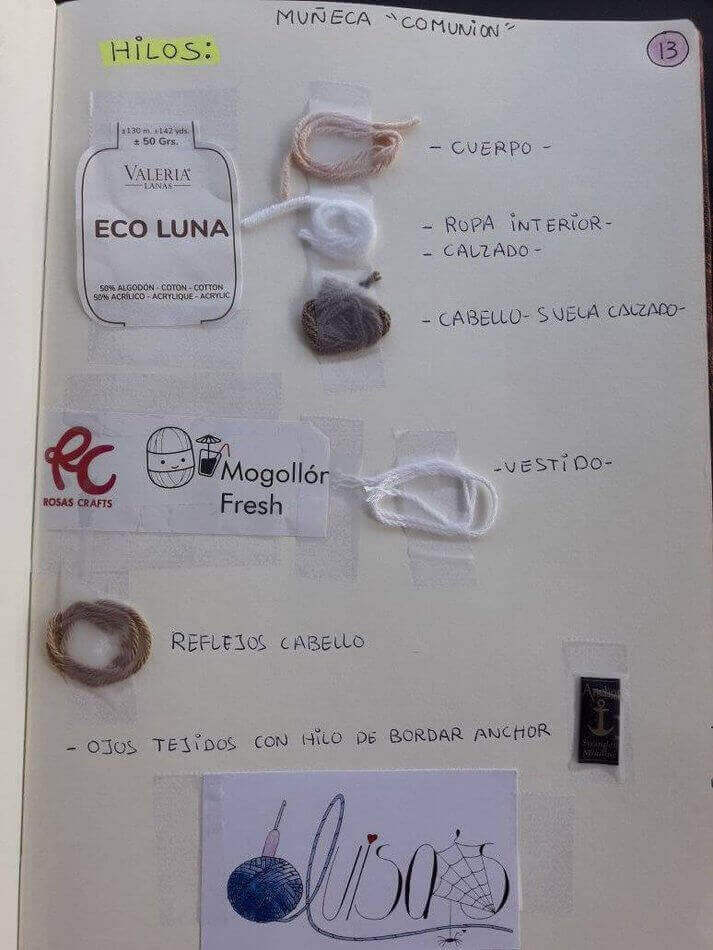 MUÑECA "COMUNION"
13
HILOS:
±130 m. ±142 yds.
± 50 Grs.
VALERIA
LANAS
ECO LUNA
50% ALGODÓN - COTON - COTTON
50% ACRÍLICO - ACRYLIQUE - ACRYLIC
- CUERPO -
- ROPA INTERIOR-
- CALZADO-
- CABELLO- SUELA CALZADO-
RC
ROSAS CRAFTS
Mogollón
Fresh
-VESTIDO-
REFLEJOS CABELLO
- OJOS TEJIDOS CON HILO DE BORDAR ANCHOR
Anchor
luisais